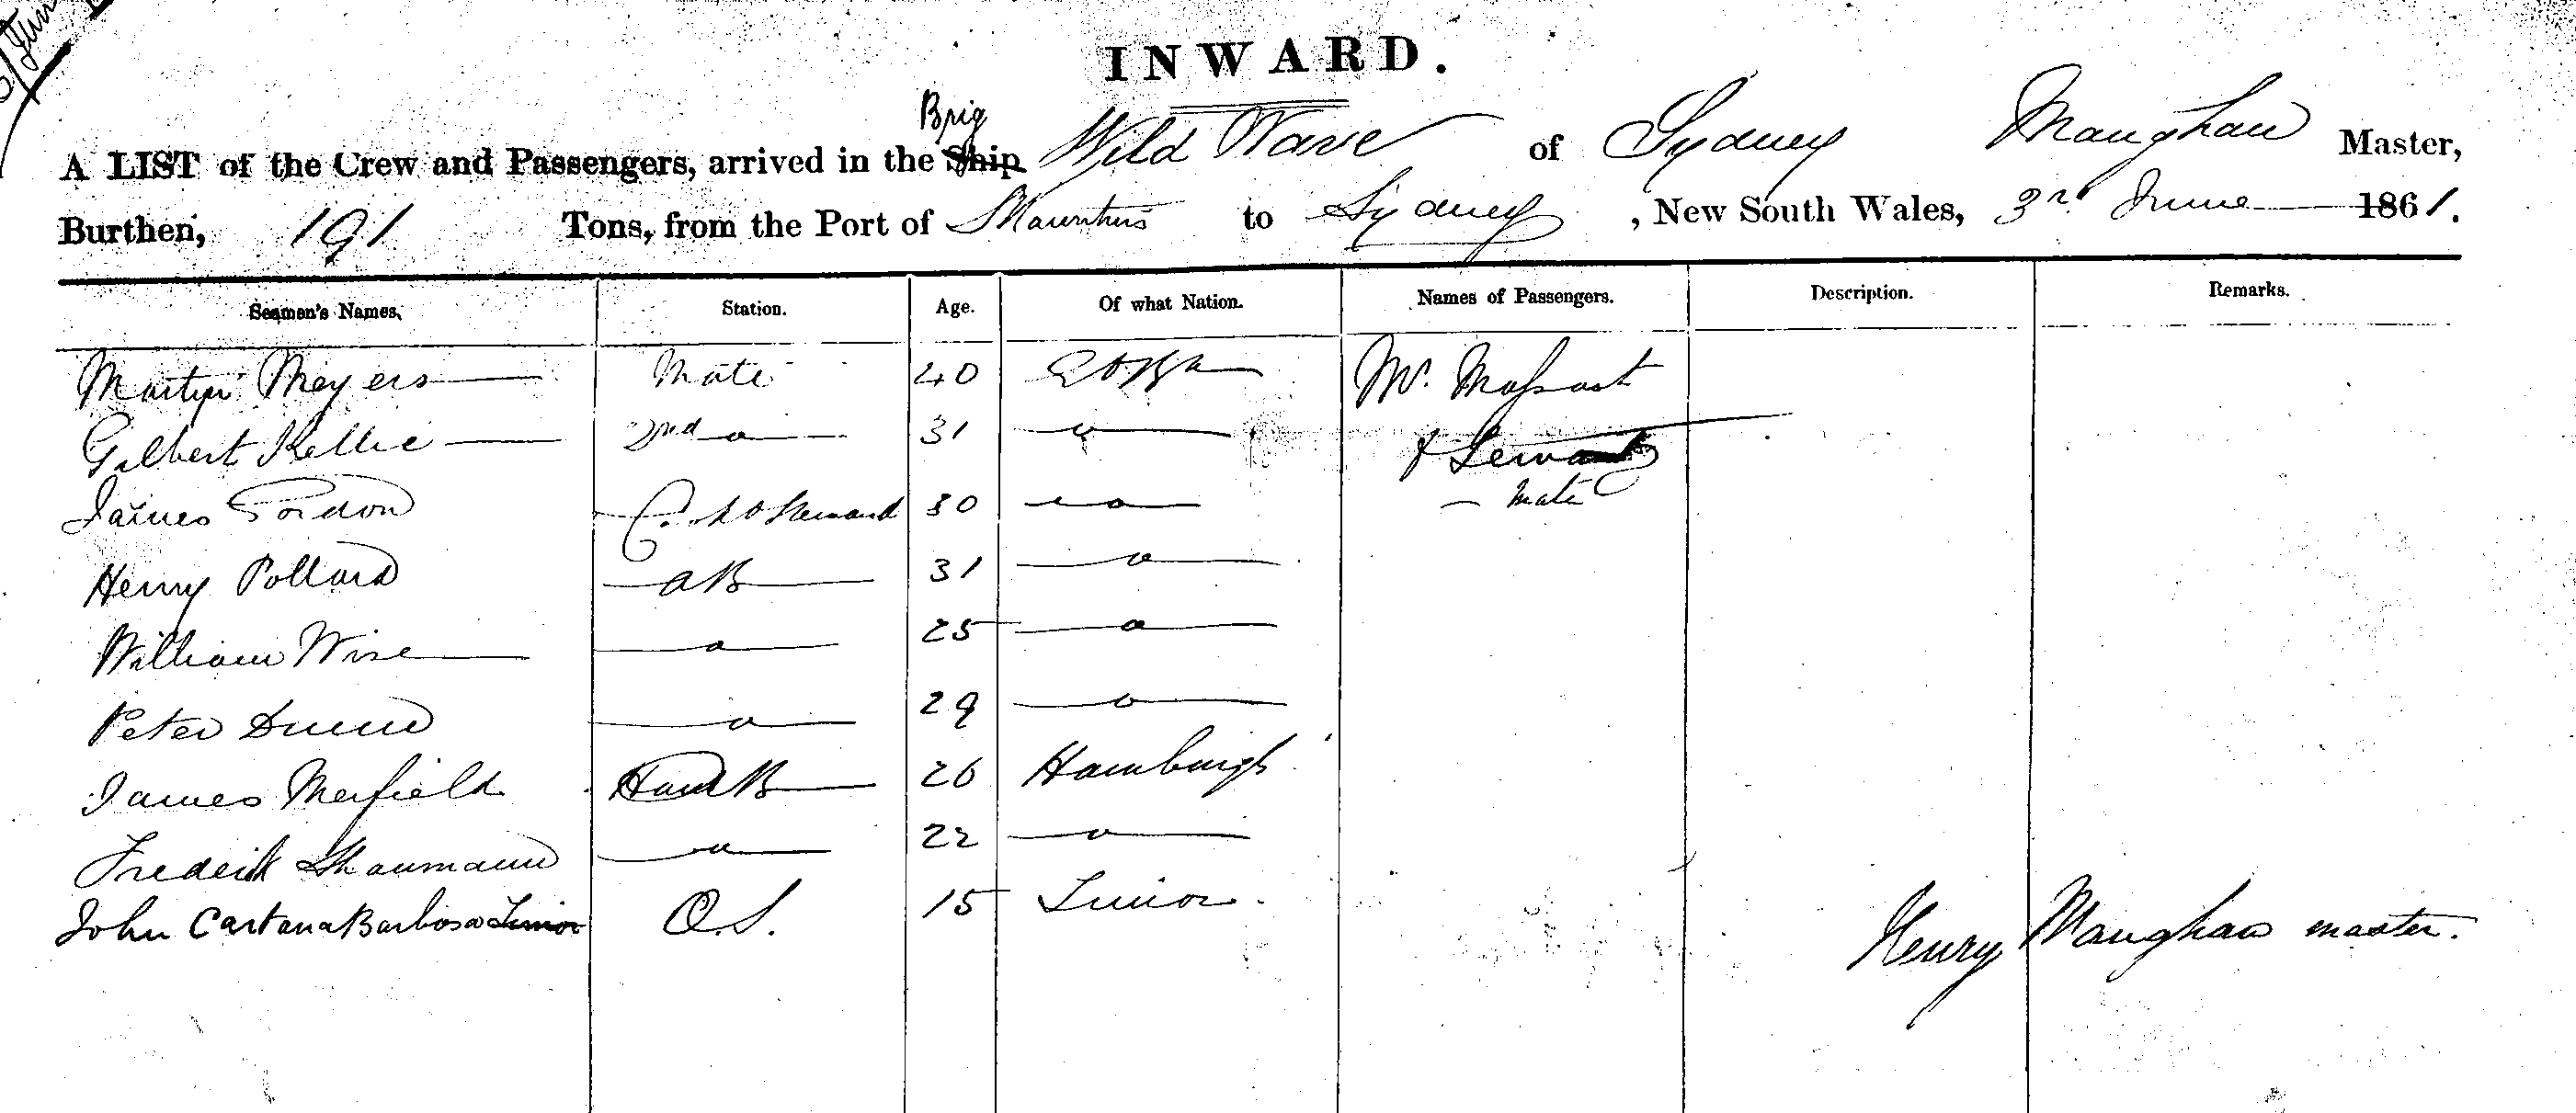 INWARD.
Brig
A LIST of the Crew and Passengers, arrived in the Ship Wild Wave of Sydney Maughan Master,
Burthen, 191 Tons, from the Port of Mauritius to Sydney, New South Wales, 3rd June 1861.
Seamen's Names, Station. Age. Of what Nation. Names of Passengers. Description. Remarks.
Martyn Meyers Mate 40 Mr.
Gilbert Kellie 2nd o 31 o & Servant
James Gordon Steward 30 o Mate
Henry Pollard AB 31 o
William Wise o 25 o
Peter o 29 o
James Merfield B 26 Hamburgh
Frederick o 22 o
John Cartana Barbosa O.S. 15
Henry Maughan master.